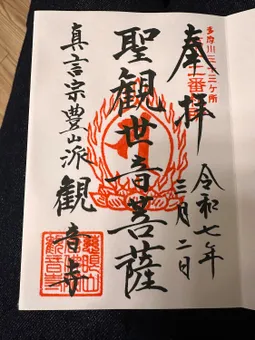 奉拝
多摩川三十三ヶ所
令和七年
三月二日
聖観世音菩薩
真言宗豊山派
観音寺